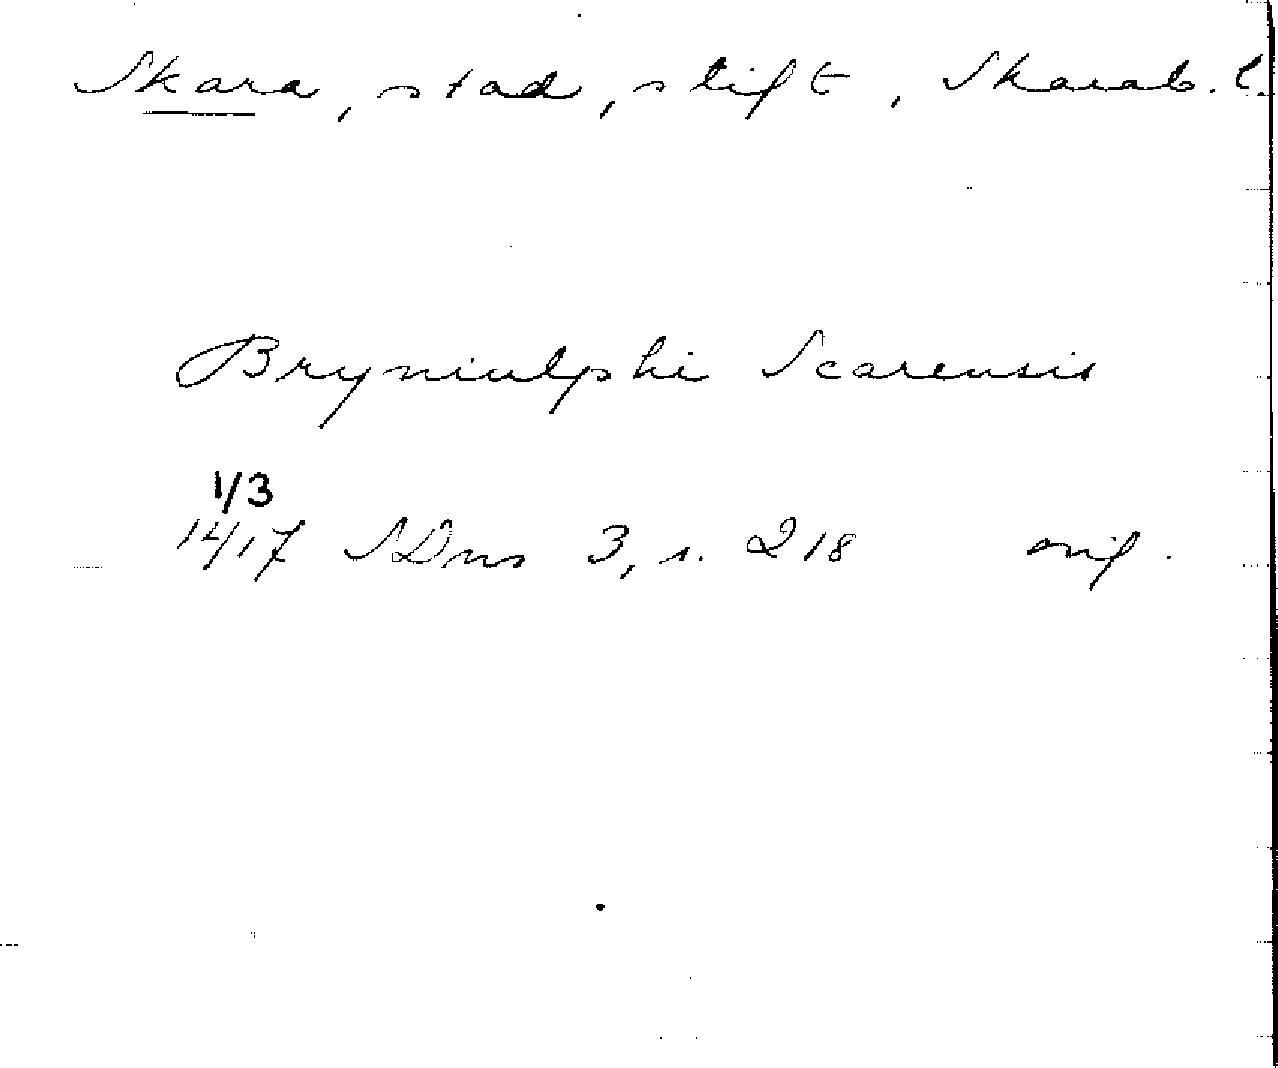 Skara, stad, stift, Skarab. l.
Bryniulphi Scarensis
1/3
1417 SDns 3, s. 218 orig.